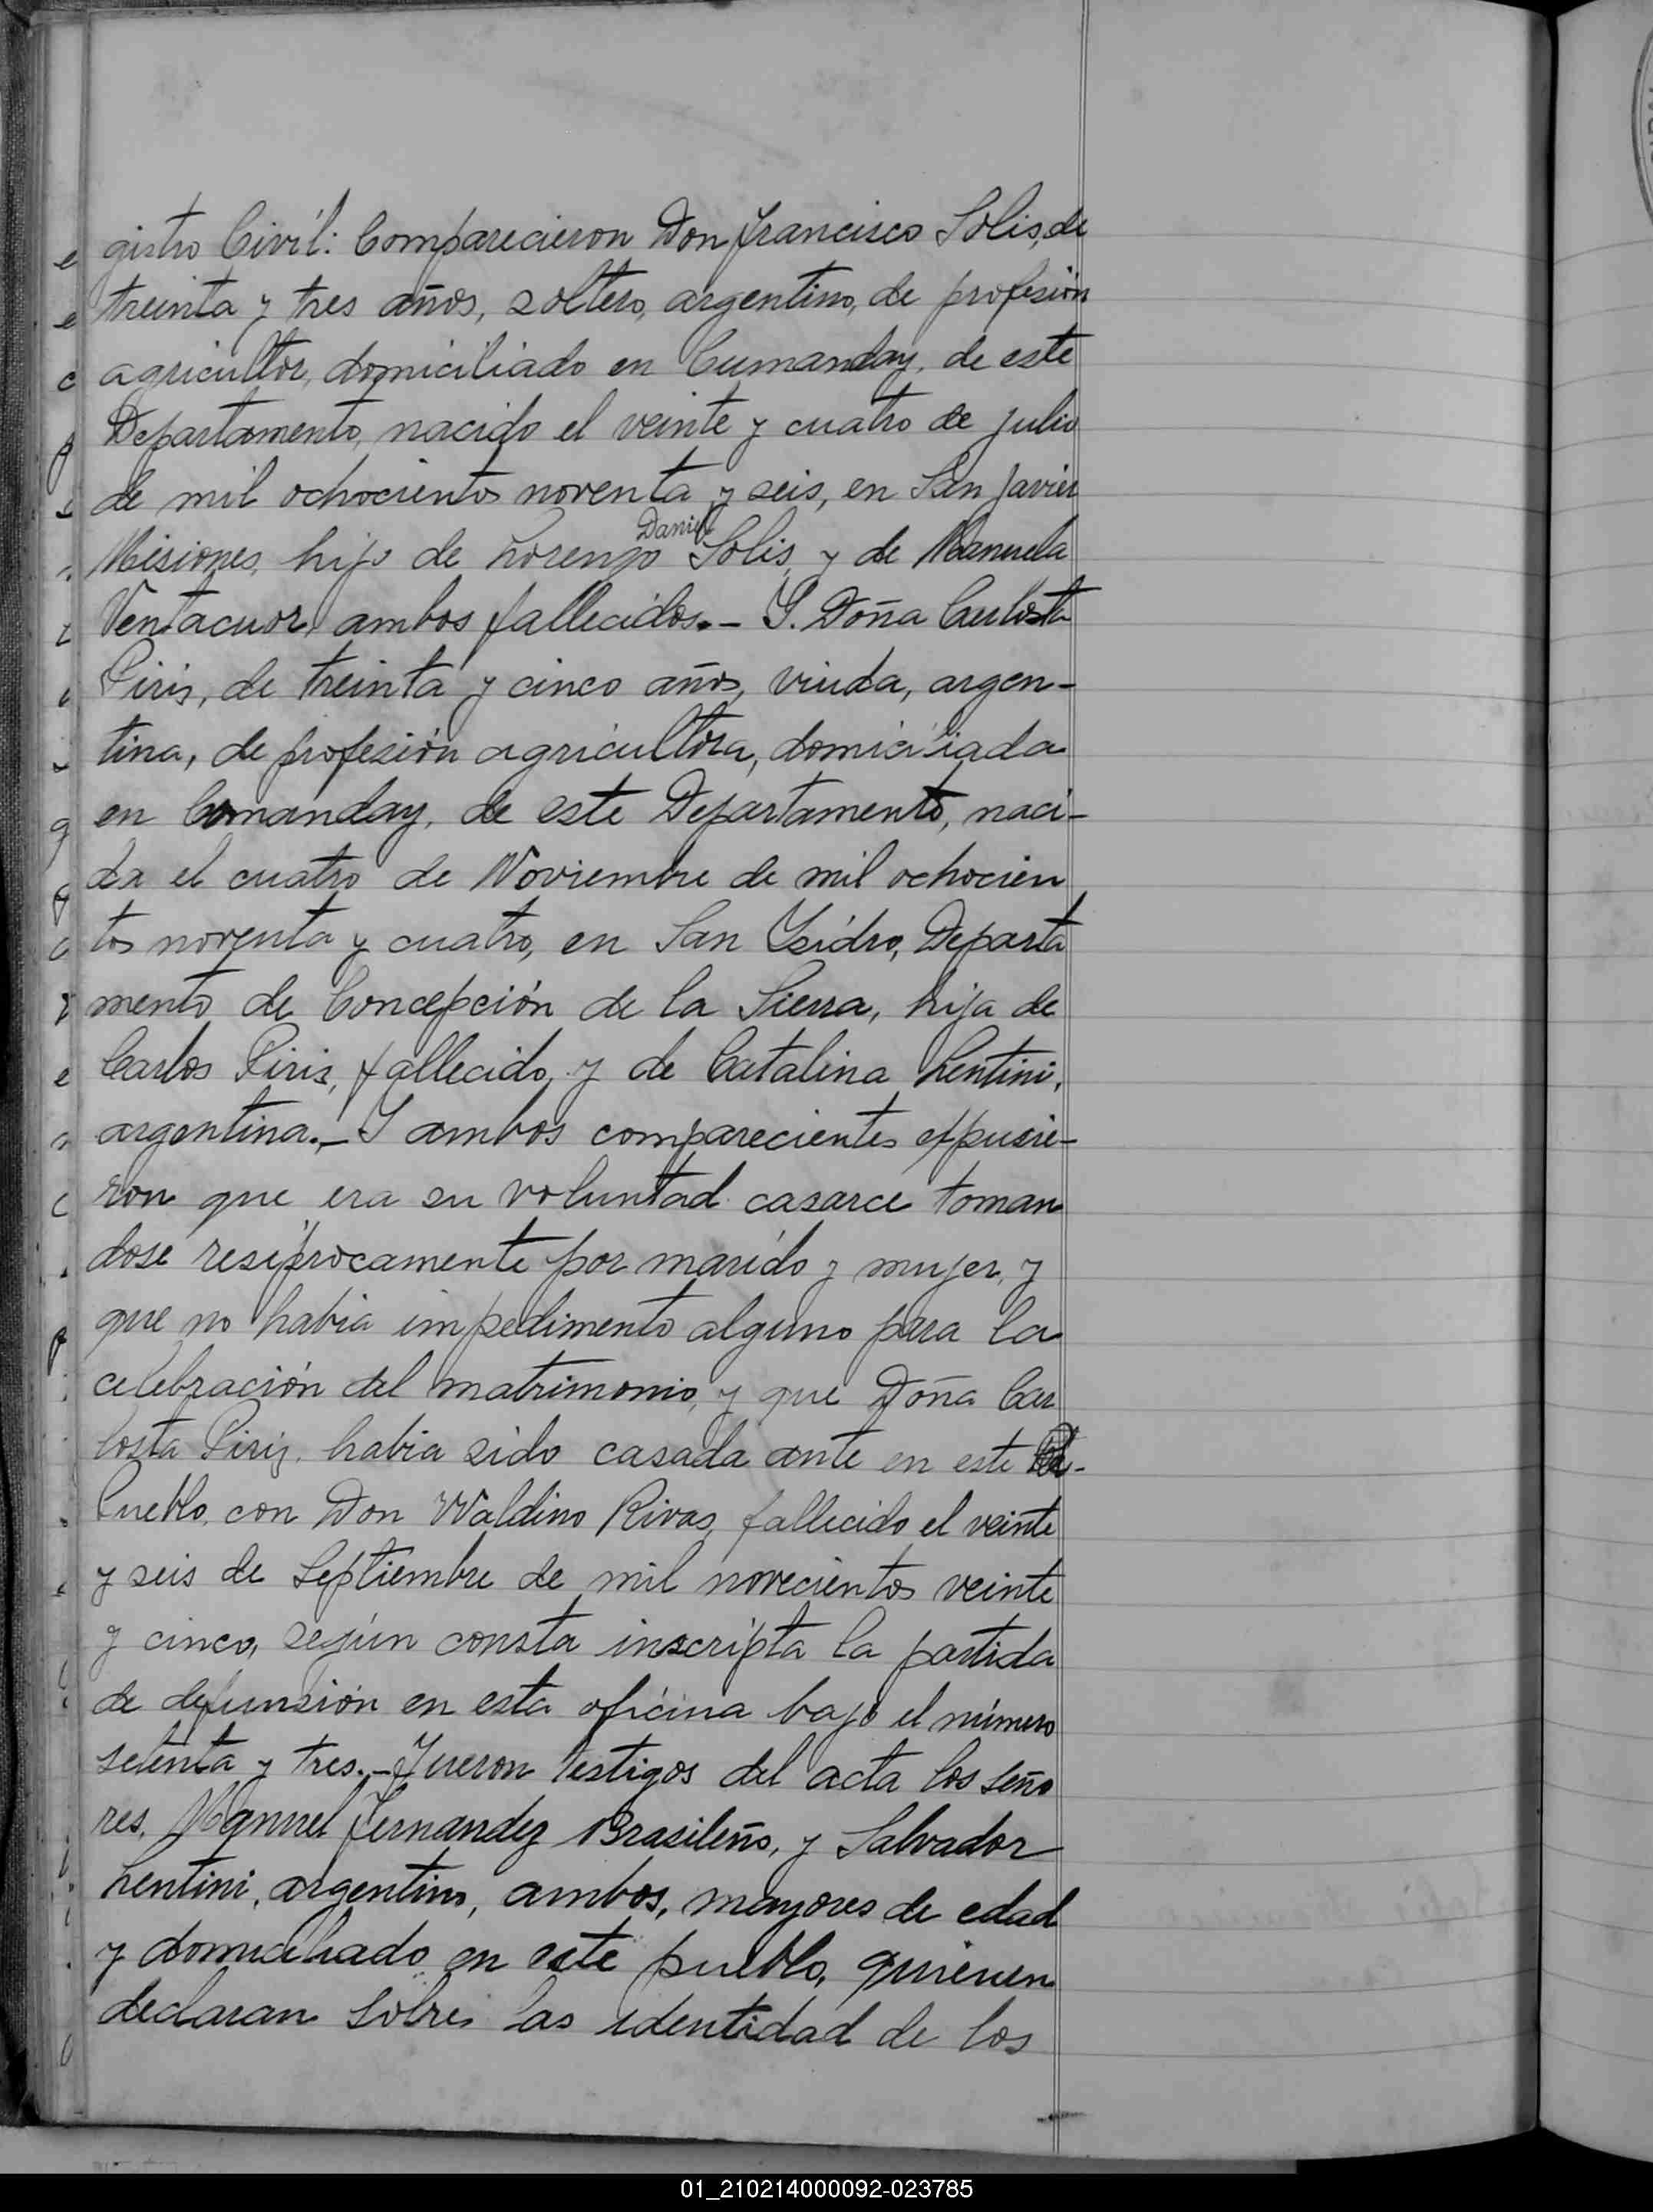 gistro Civil: Comparecieron Don Francisco Solis, de
treinta y tres años, soltero, argentino, de profesión
agricultor, domiciliado en Cumanday, de este
Departamento, nacido el veinte y cuatro de julio
de mil ochocientos noventa y seis, en San Javier
Daniel
Misiones, hijo de Lorenzo Solis, y de Manuela
Ventacuor, ambos fallecidos.- Y. Doña Carlosta
Piris, de treinta y cinco años, viuda, argen-
tina, de profesión agricultora, domiciliada
en Comanday, de este Departamento, naci-
da el cuatro de Noviembre de mil ochocien
tos noventa y cuatro, en San Ysidro, Departa
mento de Concepción de la Sierra, hija de
Carlos Piris, fallecido, y de Catalina Lentini,
argentina.- Y ambos comparecientes expusie-
ron que era su voluntad casarce toman
dose resiprocamente por marido y mujer, y
que no habia impedimento alguno para la
celebración del matrimonio, y que Doña Car
losta Piris, habia sido casada ante en este
Pueblo, con Don Waldino Rivas, fallecido el veinte
y seis de Septiembre de mil novecientos veinte
y cinco, según consta inscripta la partida
de defunsión en esta oficina bajo el número
setenta y tres.- Fueron testigos del acta los seño
res, Manuel Fernandez Brasileño, y Salvador
Lentini, argentino, ambos, mayores de edad
y domiciliado en este pueblo, quienen
declaran sobre las identidad de los
01_210214000092-023785